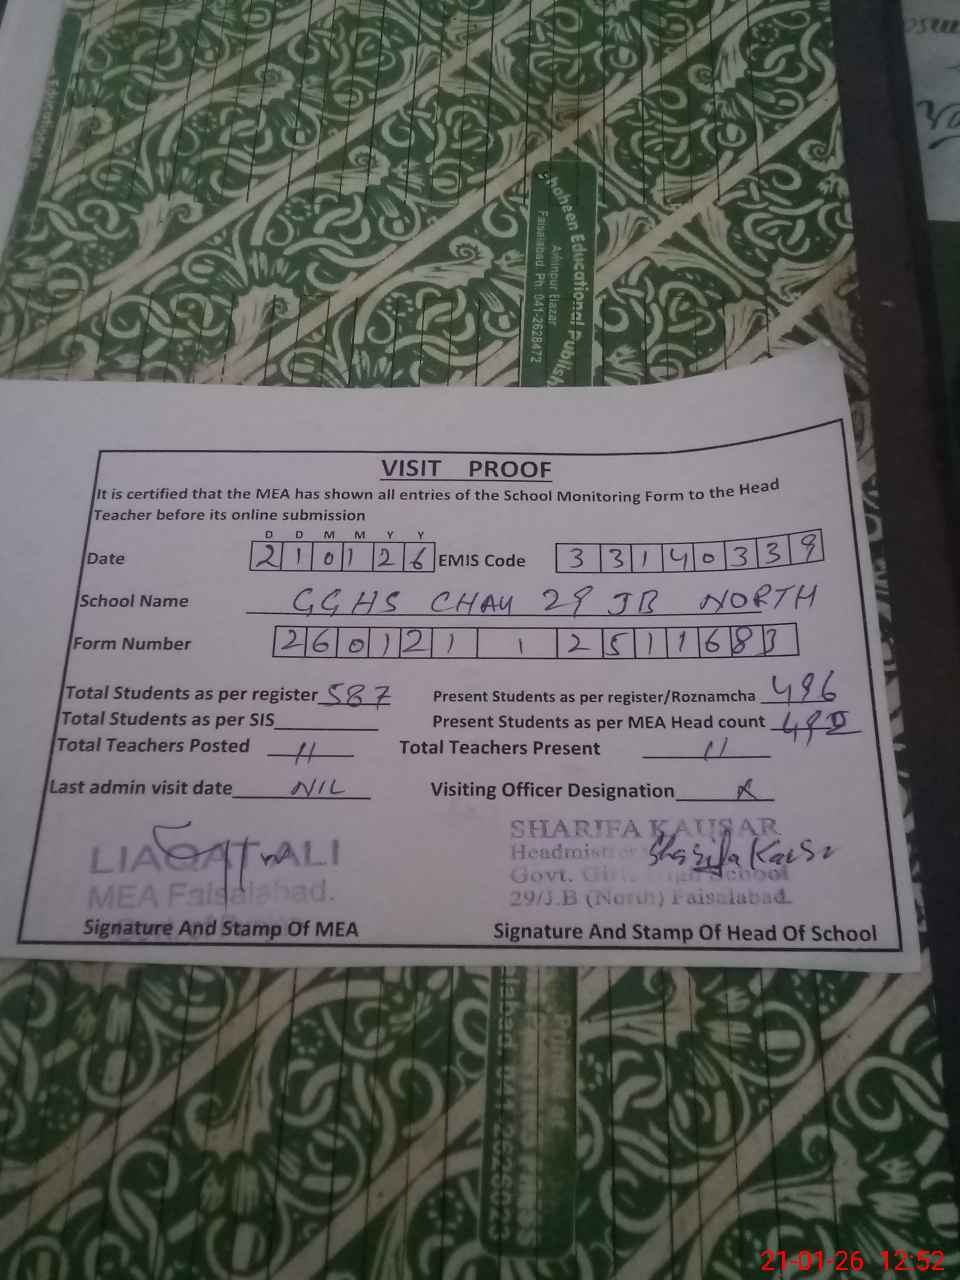 Shaheen Educational Publish
Aminpur Bazar
Faisalabad Ph: 041-2628472
VISIT PROOF
It is certified that the MEA has shown all entries of the School Monitoring Form to the Head
Teacher before its online submission
D D M M Y Y
Date 210126 EMIS Code 33140339
School Name GGHS CHAK 29 JB NORTH
Form Number 260121 1 2511683
Total Students as per register 587 Present Students as per register/Roznamcha 496
Total Students as per SIS Present Students as per MEA Head count
Total Teachers Posted 11 Total Teachers Present 11
Last admin visit date NIL Visiting Officer Designation
LIAQAT ALI
MEA Faisalabad.
Signature And Stamp Of MEA
SHARIFA KAUSAR
Headmistress
Govt. Girls High School
29/J.B (North) Faisalabad.
Signature And Stamp Of Head Of School
21-01-26 12:52